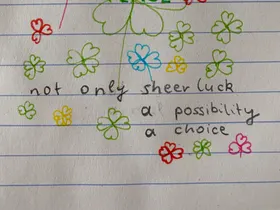 not only sheer luck
a possibility
a choice